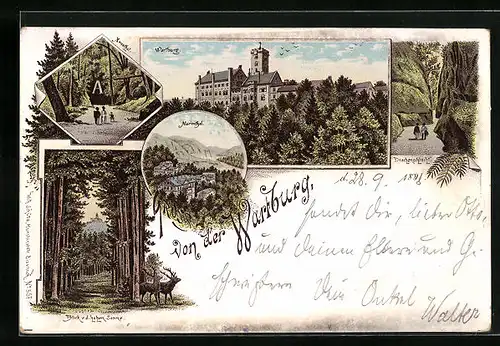 Wartburg
Marienthal
Drachenschlucht
Gruss von der Wartburg.
d. 28. 9. 1898
sendet Dir, lieber Otto,
und Deinen Eltern und Ge
schwistern Dein Onkel
Walter
Blick v. d. hohen Sonne